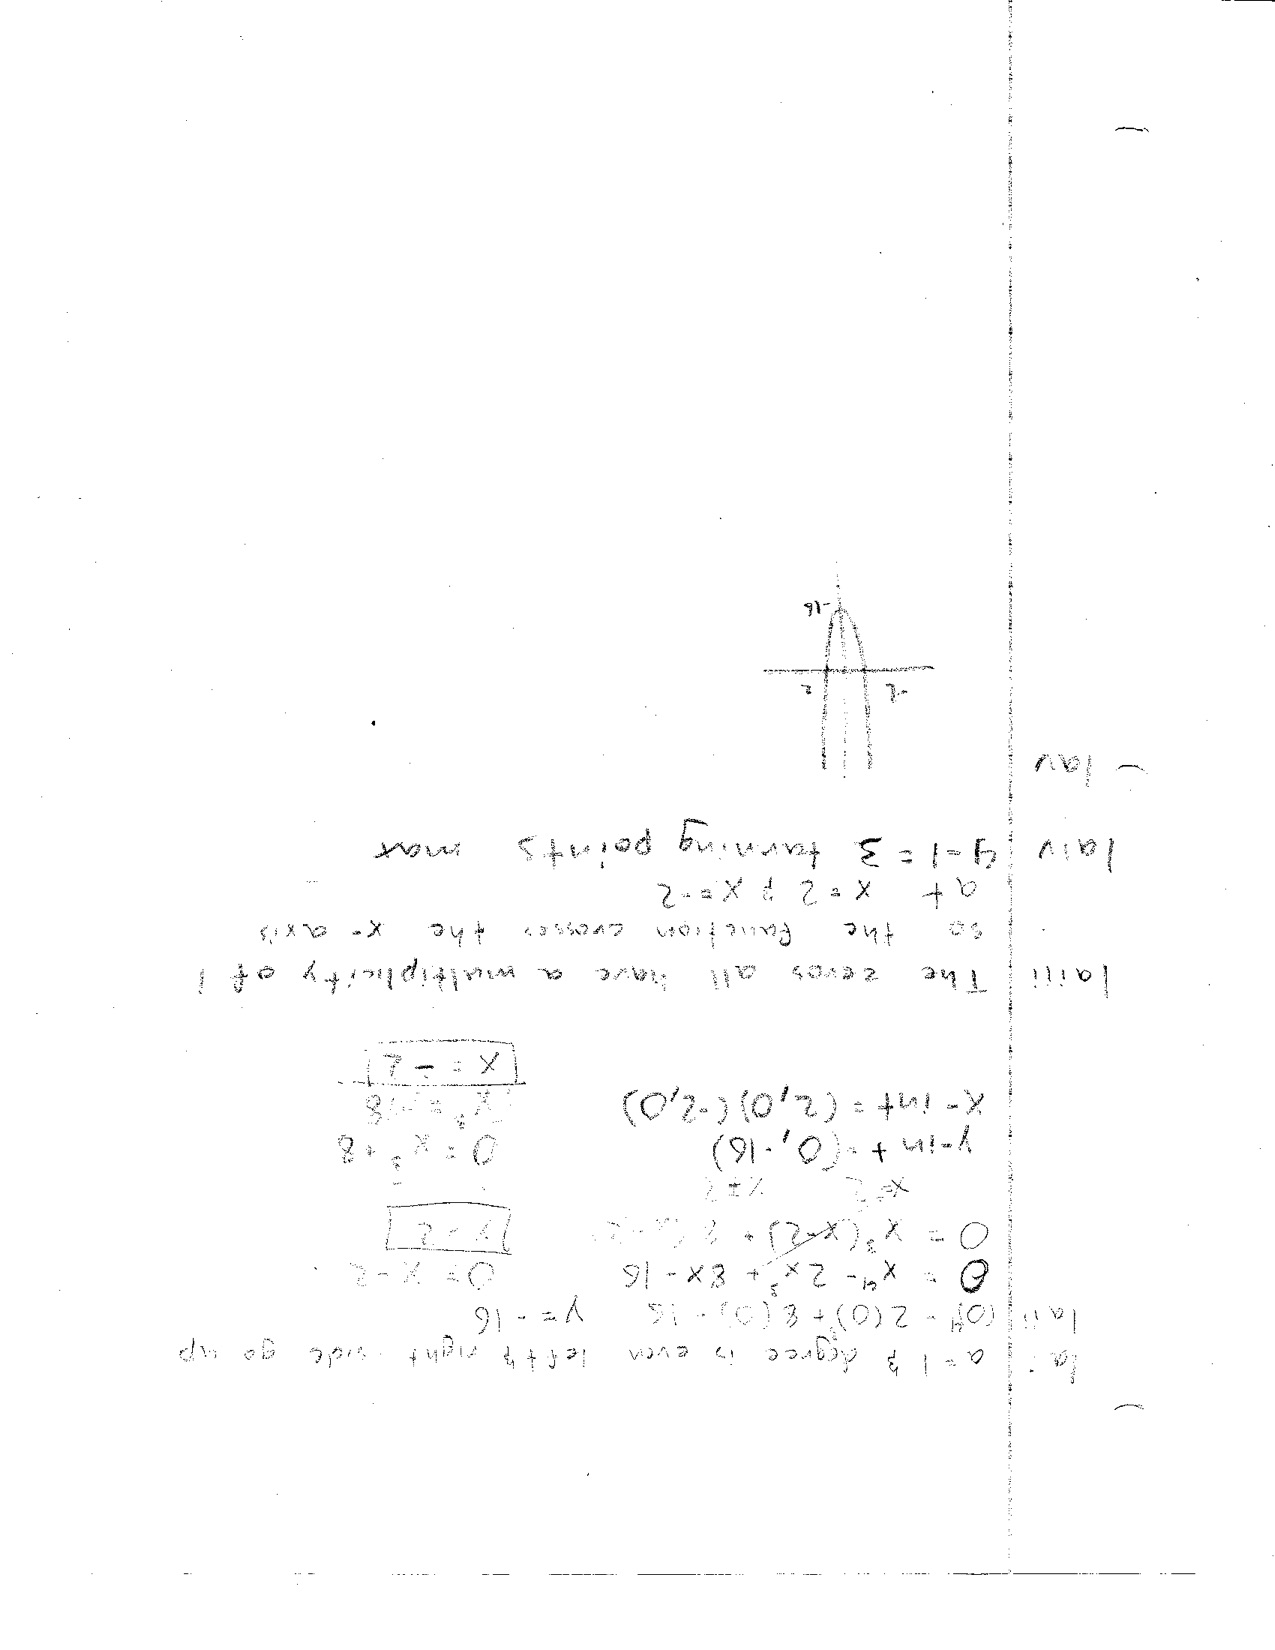 1ai a=1 & degree is even left & right side go up
1aii (0)⁴-2(0)³+8(0)-16 y=-16
0 = x⁴-2x³+8x-16 0=x-2
0 = x³(x-2)+8(x-2) x=2
x=2
y-int=(0,-16) 0=x³+8
x-int=(2,0)(-2,0) x³=-8
x=-2
1aiii The zeros all have a multiplicity of 1
so the function crosses the x-axis
at x=2 & x=-2
1aiv 4-1=3 turning points max
1av
-2 2
-16